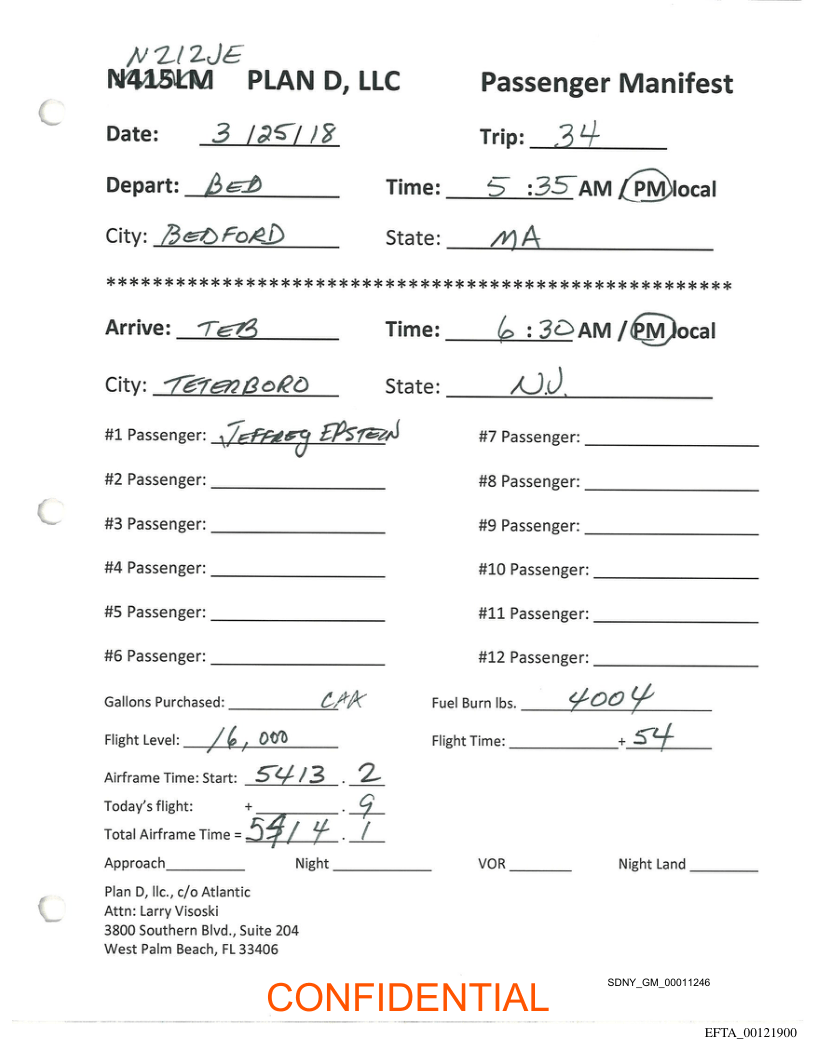 N212JE
N415LM PLAN D, LLC Passenger Manifest
Date: 3/25/18 Trip: 34
Depart: BED Time: 5:35 AM / PM local
City: BEDFORD State: MA
******************************************************
Arrive: TEB Time: 6:30 AM / PM local
City: TETERBORO State: N.J.
#1 Passenger: JEFFREY EPSTEIN #7 Passenger:
#2 Passenger: #8 Passenger:
#3 Passenger: #9 Passenger:
#4 Passenger: #10 Passenger:
#5 Passenger: #11 Passenger:
#6 Passenger: #12 Passenger:
Gallons Purchased: CAA Fuel Burn lbs. 4004
Flight Level: 16,000 Flight Time: + 54
Airframe Time: Start: 5413 . 2
Today's flight: + . 9
Total Airframe Time = 5414 . 1
Approach Night VOR Night Land
Plan D, llc., c/o Atlantic
Attn: Larry Visoski
3800 Southern Blvd., Suite 204
West Palm Beach, FL 33406
SDNY_GM_00011246
CONFIDENTIAL
EFTA_00121900